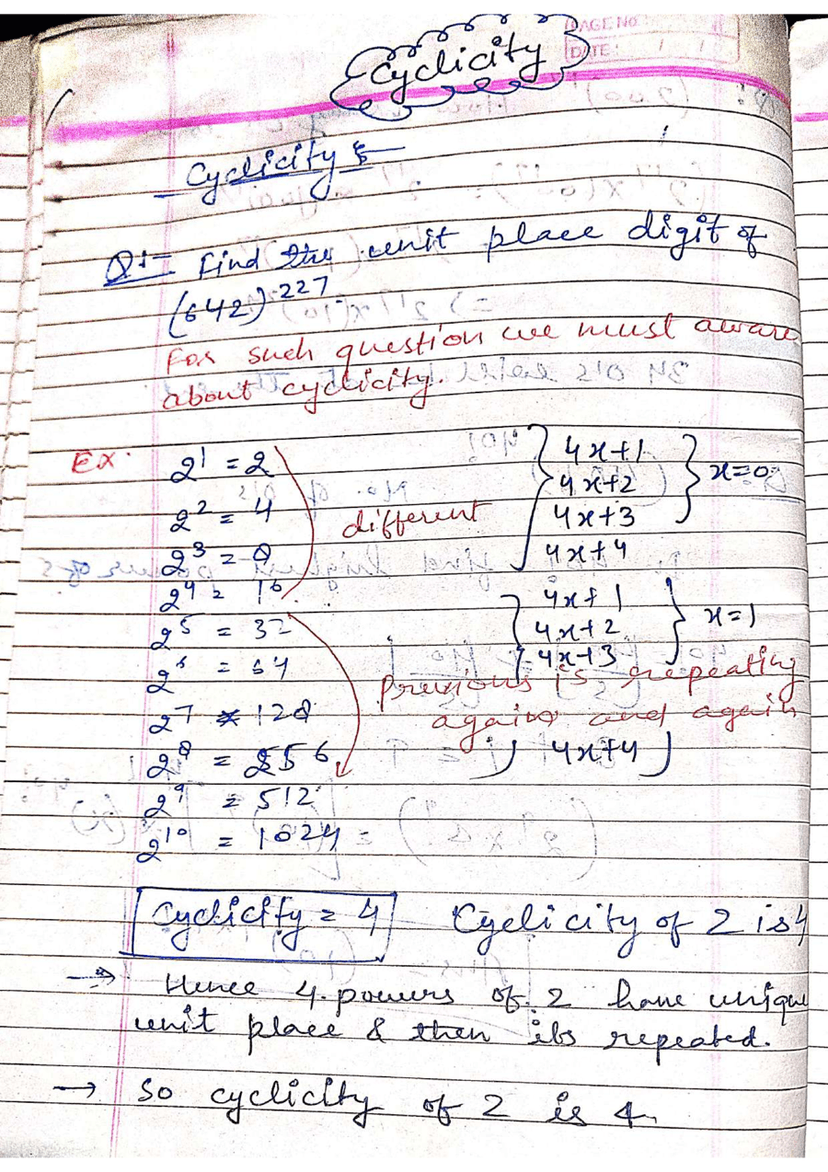 PAGE NO:
DATE: / /
Cyclicity
Cyclicity :-
Q:- Find the unit place digit of
(642)^227
For such question we must aware
about cyclicity.
Ex. 2^1 = 2
2^2 = 4
2^3 = 8
2^4 = 16
2^5 = 32
2^6 = 64
2^7 = 128
2^8 = 256
2^9 = 512
2^10 = 1024
different
4x+1
4x+2
4x+3
4x+4
x=0
4x+1
4x+2
4x+3
x=1
Previous is repeating
again and again
4x+4
Cyclicity = 4 Cyclicity of 2 is 4
→ Hence 4 powers of 2 have unique
unit place & then its repeated.
→ So cyclicity of 2 is 4.